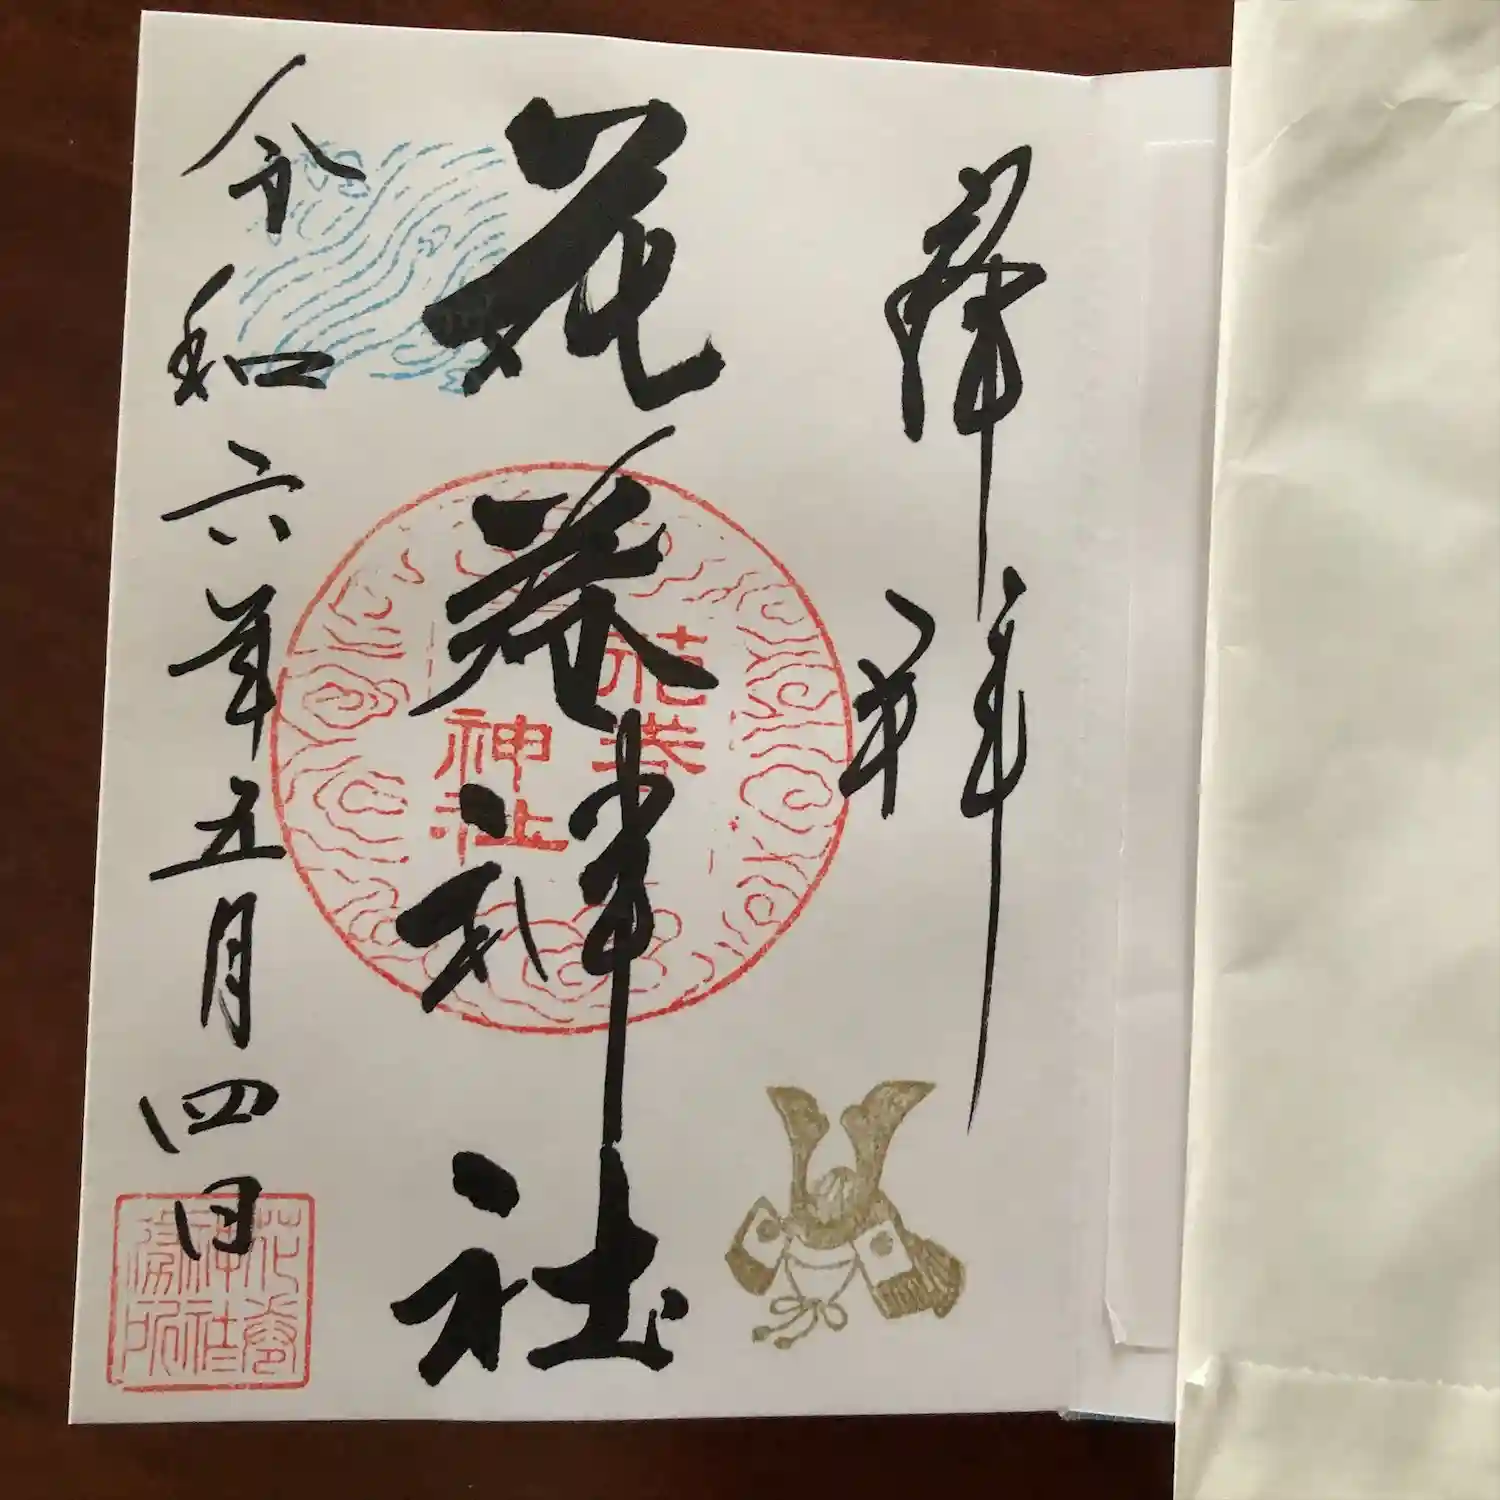 奉拝
花巻神社
令和六年五月四日
花巻
神社
花巻
神社
務所